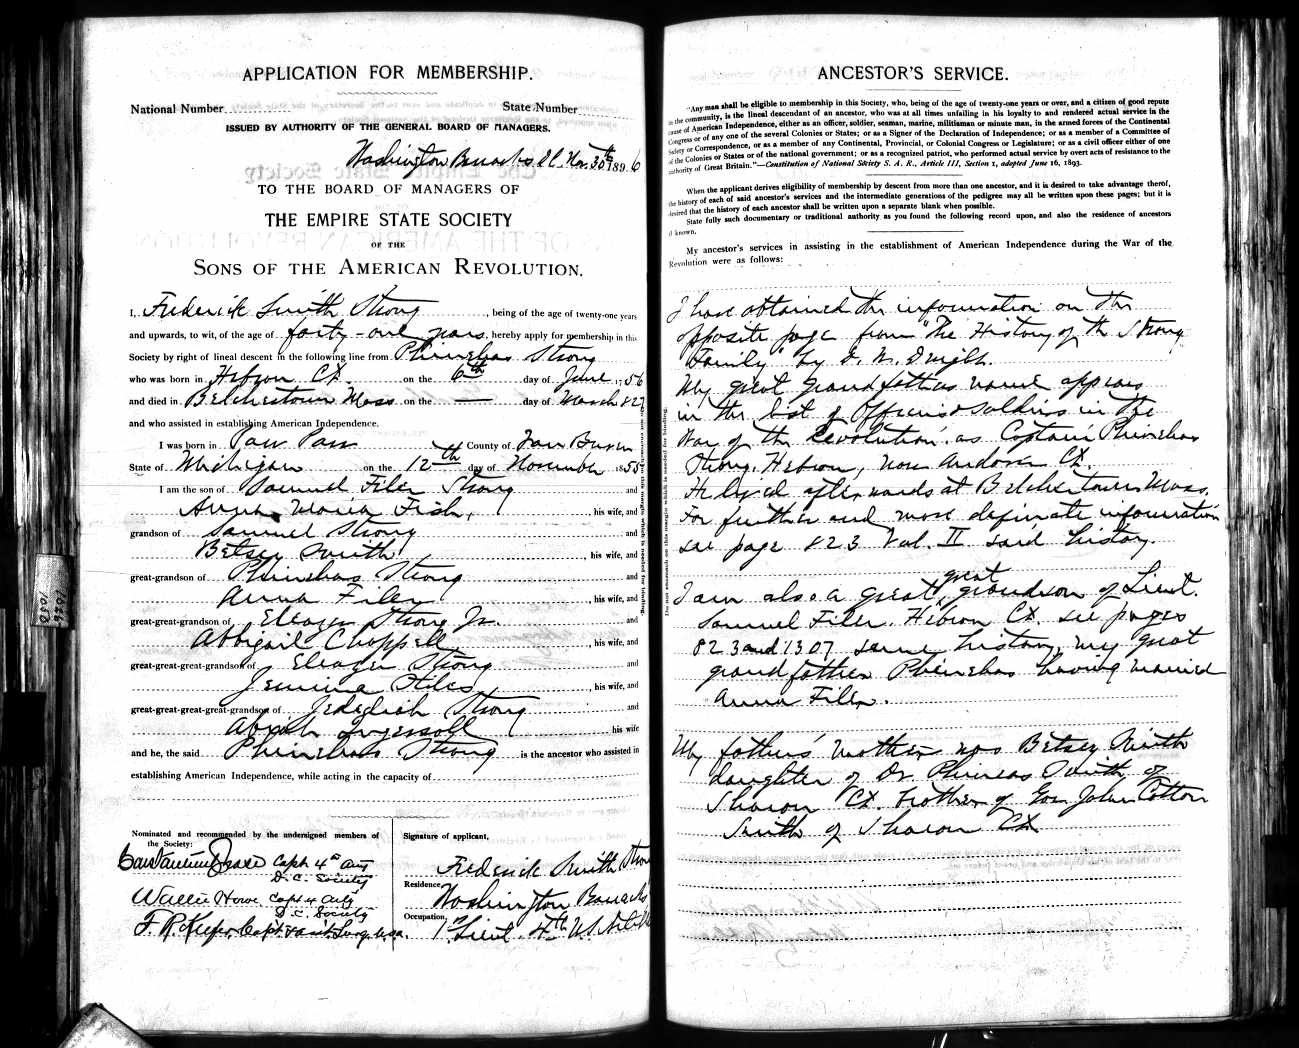 APPLICATION FOR MEMBERSHIP.
National Number
State Number
ISSUED BY AUTHORITY OF THE GENERAL BOARD OF MANAGERS.
Washington Barracks D.C. Nov. 30th 1896
TO THE BOARD OF MANAGERS OF
THE EMPIRE STATE SOCIETY
OF THE
SONS OF THE AMERICAN REVOLUTION.
I, Frederick Smith Strong, being of the age of twenty-one years
and upwards, to wit, of the age of forty-one years, hereby apply for membership in this
Society by right of lineal descent in the following line from Phinehas Strong
who was born in Hebron Ct. on the 6th day of June 1756
and died in Belchertown Mass on the — day of March 1827
and who assisted in establishing American Independence.
I was born in Paw Paw County of Van Buren
State of Michigan on the 12th day of November 1855
I am the son of Samuel Filer Strong and
Anna Maria Fish, his wife, and
grandson of Samuel Strong and
Betsey Smith, his wife, and
great-grandson of Phinehas Strong and
Anna Filer, his wife, and
great-great-grandson of Eleazer Strong Jr. and
Abbigail Chappell, his wife, and
great-great-great-grandson of Eleazer Strong and
Jemima Stiles, his wife, and
great-great-great-great-grandson of Jedediah Strong and
Abiah Ingersoll his wife
and he, the said Phinehas Strong is the ancestor who assisted in
establishing American Independence, while acting in the capacity of
Nominated and recommended by the undersigned members of
the Society:
Constantine Chase Capt. 4th Arty
D.C. Society
Walter Howe Capt 4 Arty
D.C. Society
Capt. & Asst. Surg. U.S.A.
Signature of applicant,
Frederick Smith Strong
Residence, Washington Barracks
Occupation, 1st Lieut. 4th U.S. Art.
Do not encroach on this margin which is needed for binding.
ANCESTOR'S SERVICE.
"Any man shall be eligible to membership in this Society, who, being of the age of twenty-one years or over, and a citizen of good repute
in the community, is the lineal descendant of an ancestor, who was at all times unfailing in his loyalty to and rendered actual service in the
cause of American Independence, either as an officer, soldier, seaman, marine, militiaman or minute man, in the armed forces of the Continental
Congress or of any one of the several Colonies or States; or as a Signer of the Declaration of Independence; or as a member of a Committee of
Safety or Correspondence, or as a member of any Continental, Provincial, or Colonial Congress or Legislature; or as a civil officer either of one
of the Colonies or States or of the national government; or as a recognized patriot, who performed actual service by overt acts of resistance to the
authority of Great Britain."—Constitution of National Society S. A. R., Article III, Section 1, adopted June 16, 1893.
When the applicant derives eligibility of membership by descent from more than one ancestor, and it is desired to take advantage thereof,
the history of each of said ancestor's services and the intermediate generations of the pedigree may all be written upon these pages; but it is
desired that the history of each ancestor shall be written upon a separate blank when possible.
State fully such documentary or traditional authority as you found the following record upon, and also the residence of ancestors
if known.
My ancestor's services in assisting in the establishment of American Independence during the War of the
Revolution were as follows:
I have obtained the information on the
opposite page from "The History of the Strong
Family" by B. W. Dwight.
My great grandfathers name appears
in the list of Officers & Soldiers in the
War of the Revolution, as Captain Phinehas
Strong, Hebron, now Andover Ct.
He lived afterwards at Belchertown Mass.
For further and more definite information
see page 823 Vol. II said history.
I am also a great great grandson of Lieut.
Samuel Filer, Hebron Ct. see pages
823 and 1307 same history, my great
grandfather Phinehas having married
Anna Filer.
My fathers' mother was Betsey Smith
daughter of Dr. Phineas Smith of
Sharon Ct. brother of Gov. John Cotton
Smith of Sharon Ct